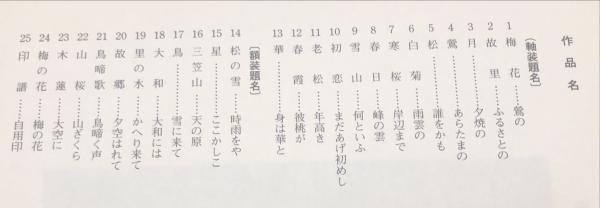 作品名
〔軸装題名〕
1 梅花……鶯の
2 故里……ふるさとの
3 月……夕焼の
4 鶯……あらたまの
5 松……誰をかも
6 白菊……雨雲の
7 寒桜……岸辺まで
8 春日……峰の雲
9 雪山……何といふ
10 初恋……まだあげ初めし
11 老松……年高き
12 春霞……彼桃が
13 華……身は華と
〔額装題名〕
14 松の雪……時雨をや
15 星……ここかしこ
16 三笠山……天の原
17 鳥……雪に来て
18 大和……大和には
19 里の水……かへり来て
20 故郷……夕空はれて
21 鳥啼歌……鳥啼く声
22 山桜……山ざくら
23 木蓮……大空に
24 梅の花……梅の花
25 印譜……自用印